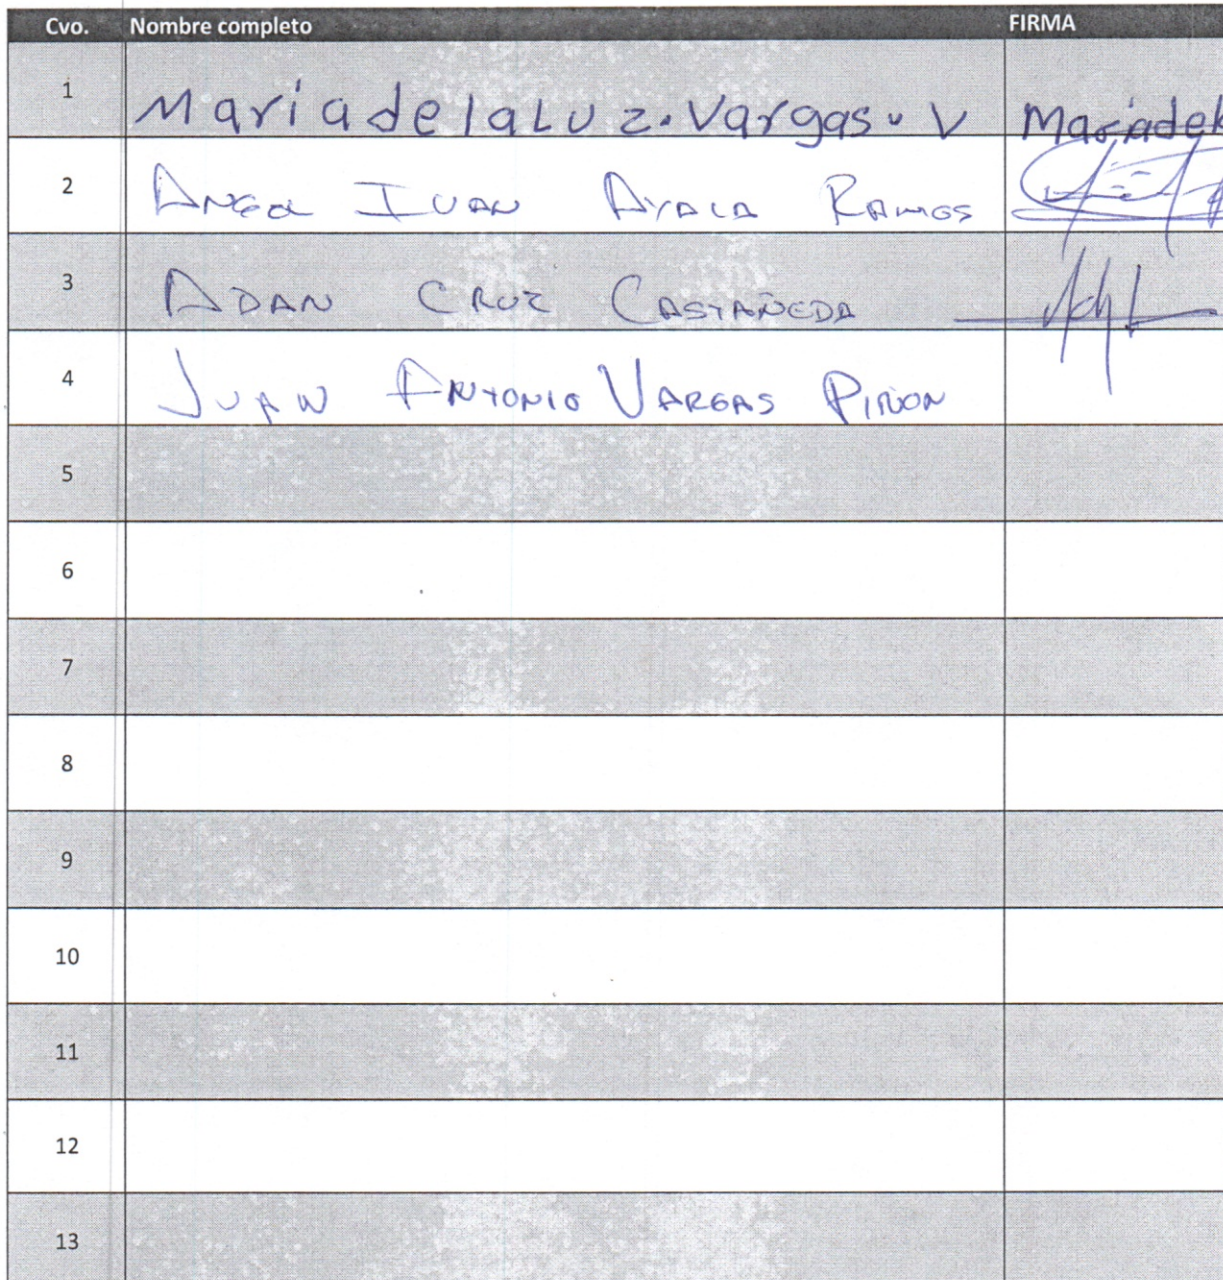 Cvo. Nombre completo FIRMA
1 Maria de la LUz. Vargas. V Mariadel
2 ANGEL IVAN AYALA RAMOS
3 ADAN CRUZ CASTAÑEDA
4 JUAN ANTONIO VARGAS PIÑON
5
6
7
8
9
10
11
12
13